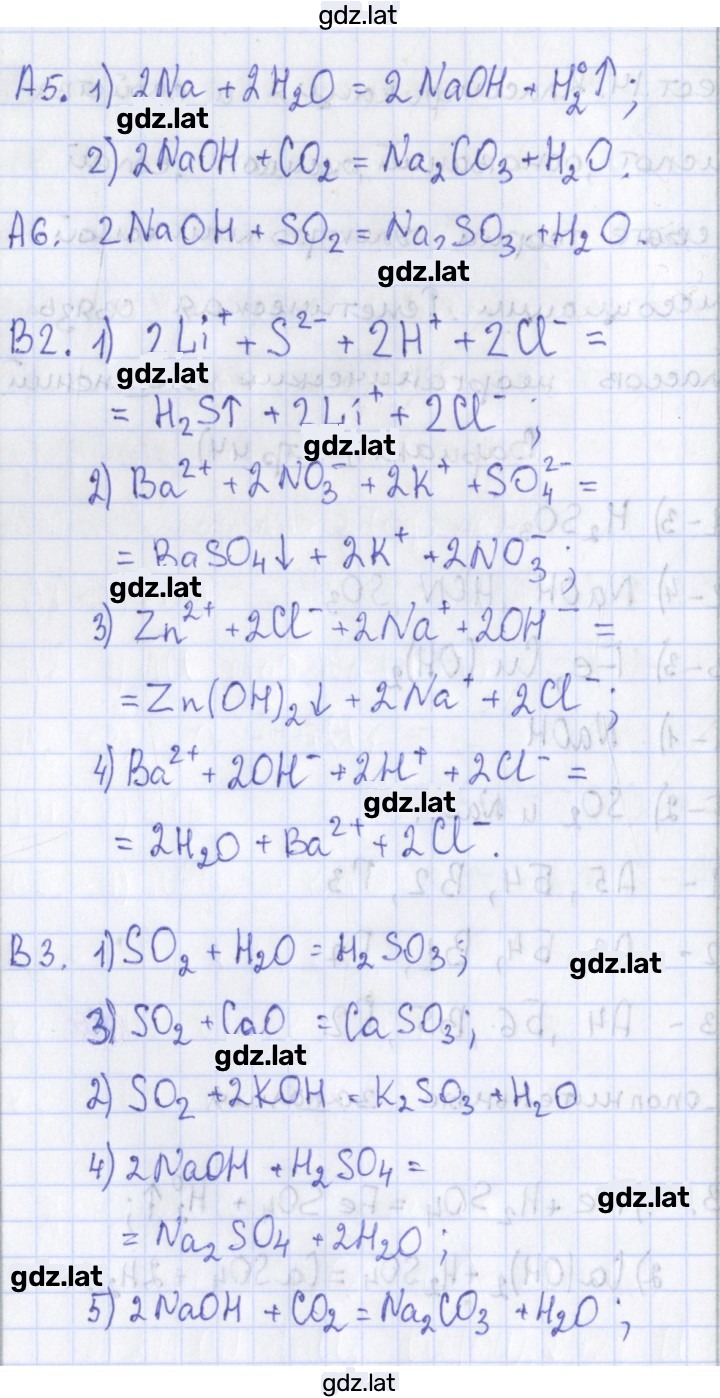 gdz.lat
А5. 1) 2Na + 2H₂O = 2NaOH + H₂⁰↑;
gdz.lat
2) 2NaOH + CO₂ = Na₂CO₃ + H₂O.
А6. 2NaOH + SO₂ = Na₂SO₃ + H₂O.
gdz.lat
В2. 1) 2Li⁺ + S²⁻ + 2H⁺ + 2Cl⁻ =
gdz.lat
= H₂S↑ + 2Li⁺ + 2Cl⁻ ;
gdz.lat
2) Ba²⁺ + 2NO₃⁻ + 2K⁺ + SO₄²⁻ =
= BaSO₄↓ + 2K⁺ + 2NO₃⁻ ;
gdz.lat
3) Zn²⁺ + 2Cl⁻ + 2Na⁺ + 2OH⁻ =
= Zn(OH)₂↓ + 2Na⁺ + 2Cl⁻ ;
4) Ba²⁺ + 2OH⁻ + 2H⁺ + 2Cl⁻ =
gdz.lat
= 2H₂O + Ba²⁺ + 2Cl⁻.
В3. 1) SO₂ + H₂O = H₂SO₃;
gdz.lat
3) SO₂ + CaO = CaSO₃;
gdz.lat
2) SO₂ + 2KOH = K₂SO₃ + H₂O
4) 2NaOH + H₂SO₄ =
gdz.lat
= Na₂SO₄ + 2H₂O ;
gdz.lat
5) 2NaOH + CO₂ = Na₂CO₃ + H₂O ;
gdz.lat